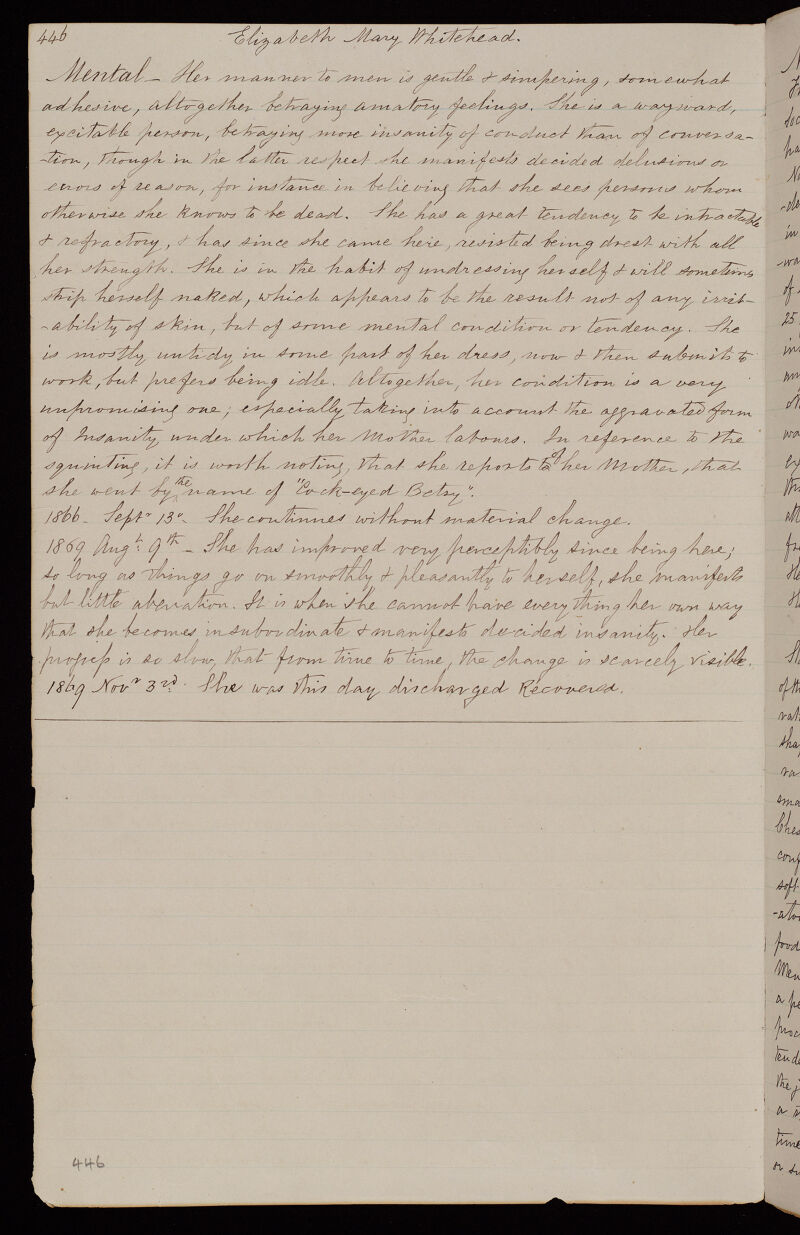 446 Elizabeth Mary Whitehead.
Mental – Her manner to men is gentle & simpering, somewhat
adhesive, altogether betraying amatory feelings. She is a wayward,
excitable person, betraying more insanity of conduct than of conversa-
-tion, though in the latter respect she manifests decided delusions or
errors of reason, for instance in believing that she sees persons whom
otherwise she knows to be dead. She has a great tendency to be intractable
& refractory, & has since she came here, resisted being drest with all
her strength. She is in the habit of undressing herself & will sometimes
strip herself naked, which appears to be the result not of any irrit-
-ability of skin, but of some mental condition or tendency. She
is mostly untidy in some part of her dress, now & then submits to
work, but prefers being idle. Altogether, her condition is a very
unpromising one; especially taking into account the aggravated form
of Insanity under which her Mother labours. In reference to the
squinting, it is worth noting, that she reports of her Mother, that
she went by the name of "Cock-eyed Betsy".
1866 – Septr 13o – She continues without material change.
1869 Augt 9th – She has improved very perceptibly since being here;
so long as things go on smoothly & pleasantly to herself, she manifests
but little aberration. It is when she cannot have everything her own way
that she becomes insubordinate & manifests decided insanity. Her
progress is so slow, that from time to time, the change is scarcely visible.
1869 Novr 3rd. She was this day discharged Recovered.
446